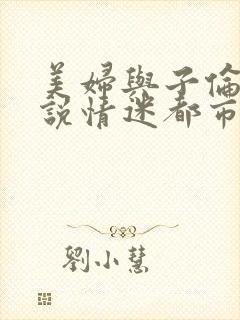 美婦與子倫
說情迷都市
劉小慧